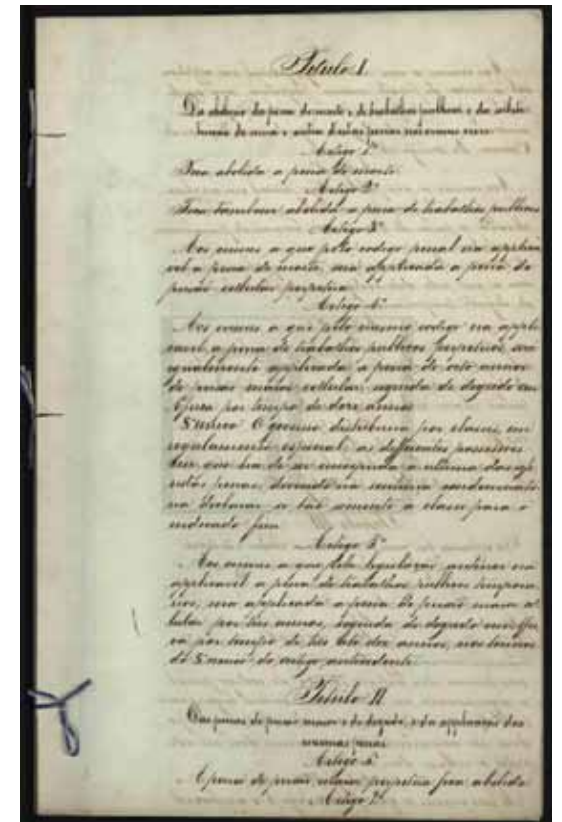 Titulo I.
Da abolição da pena de morte e de trabalhos publicos e da substi-
tuição de uma e outra d'estas penas nos crimes civis
Artigo 1º
Fica abolida a pena de morte.
Artigo 2º
Fica tambem abolida a pena de trabalhos publicos
Artigo 3º
Aos crimes a que pelo codigo penal era applica
vel a pena de morte, será applicada a pena de
prisão cellular perpetua
Artigo 4º
Aos crimes a que pelo mesmo codigo era appli
cavel a pena de trabalhos publicos perpetuos, será
igualmente applicada a pena de oito annos
de prisão maior cellular, seguida de degredo em
Africa por tempo de doze annos
§ unico O governo distribuirá por classes, em
regulamento especial, as differentes possessões
em que ha de ser cumprida a ultima das
penas, devendo na sentença condemnato
ria declarar se tão sómente a classe para o
indicado fim
Artigo 5º
Aos crimes a que pela legislação anterior era
applicavel a pena de trabalhos publicos tempora
rios, será applicada a pena de prisão maior cel
lular por tres annos, seguida de degredo em Afri
ca por tempo de tres até dez annos, nos termos
do § unico do artigo antecedente.
Titulo II
Das penas de prisão maior e de degredo, e da applicação das
mesmas penas
Artigo 6º
A pena de prisão maior perpetua fica abolida
Artigo 7º